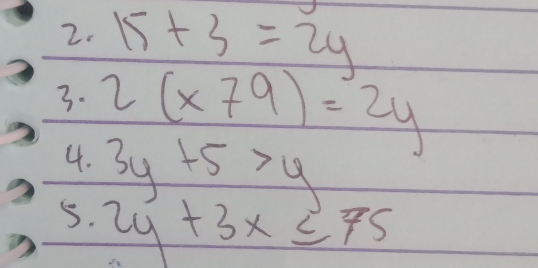 2. 15 + 3 = 2y
3. 2 (x 79) = 2y
4. 3y + 5 > y
5. 2y + 3x ≤ 75